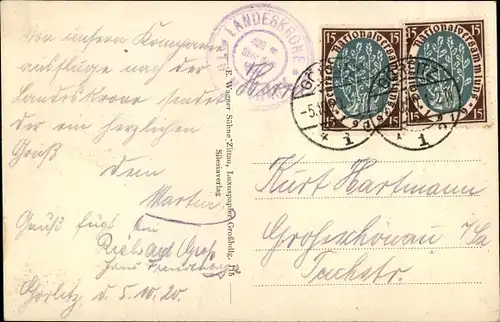 Von unserm Kompanie
ausfluge nach der
Landeskrone sendet
dir ein herzlichen
Gruß
dem
Martin
Gruß fügt bei
Richard Groß
Hans
Görlitz d. 5.10.20.
LANDESKRONE
E. Wagner Söhne-Zittau, Luxuspapier Großhdlg. 175
Silesiaverlag
15 15
Deutsche Nationalversammlung
1919
15 15
Deutsche Nationalversammlung
1919
GÖRLITZ
-5.10
1
Herrn
Kurt Hartmann
Grosschönau i/Sa